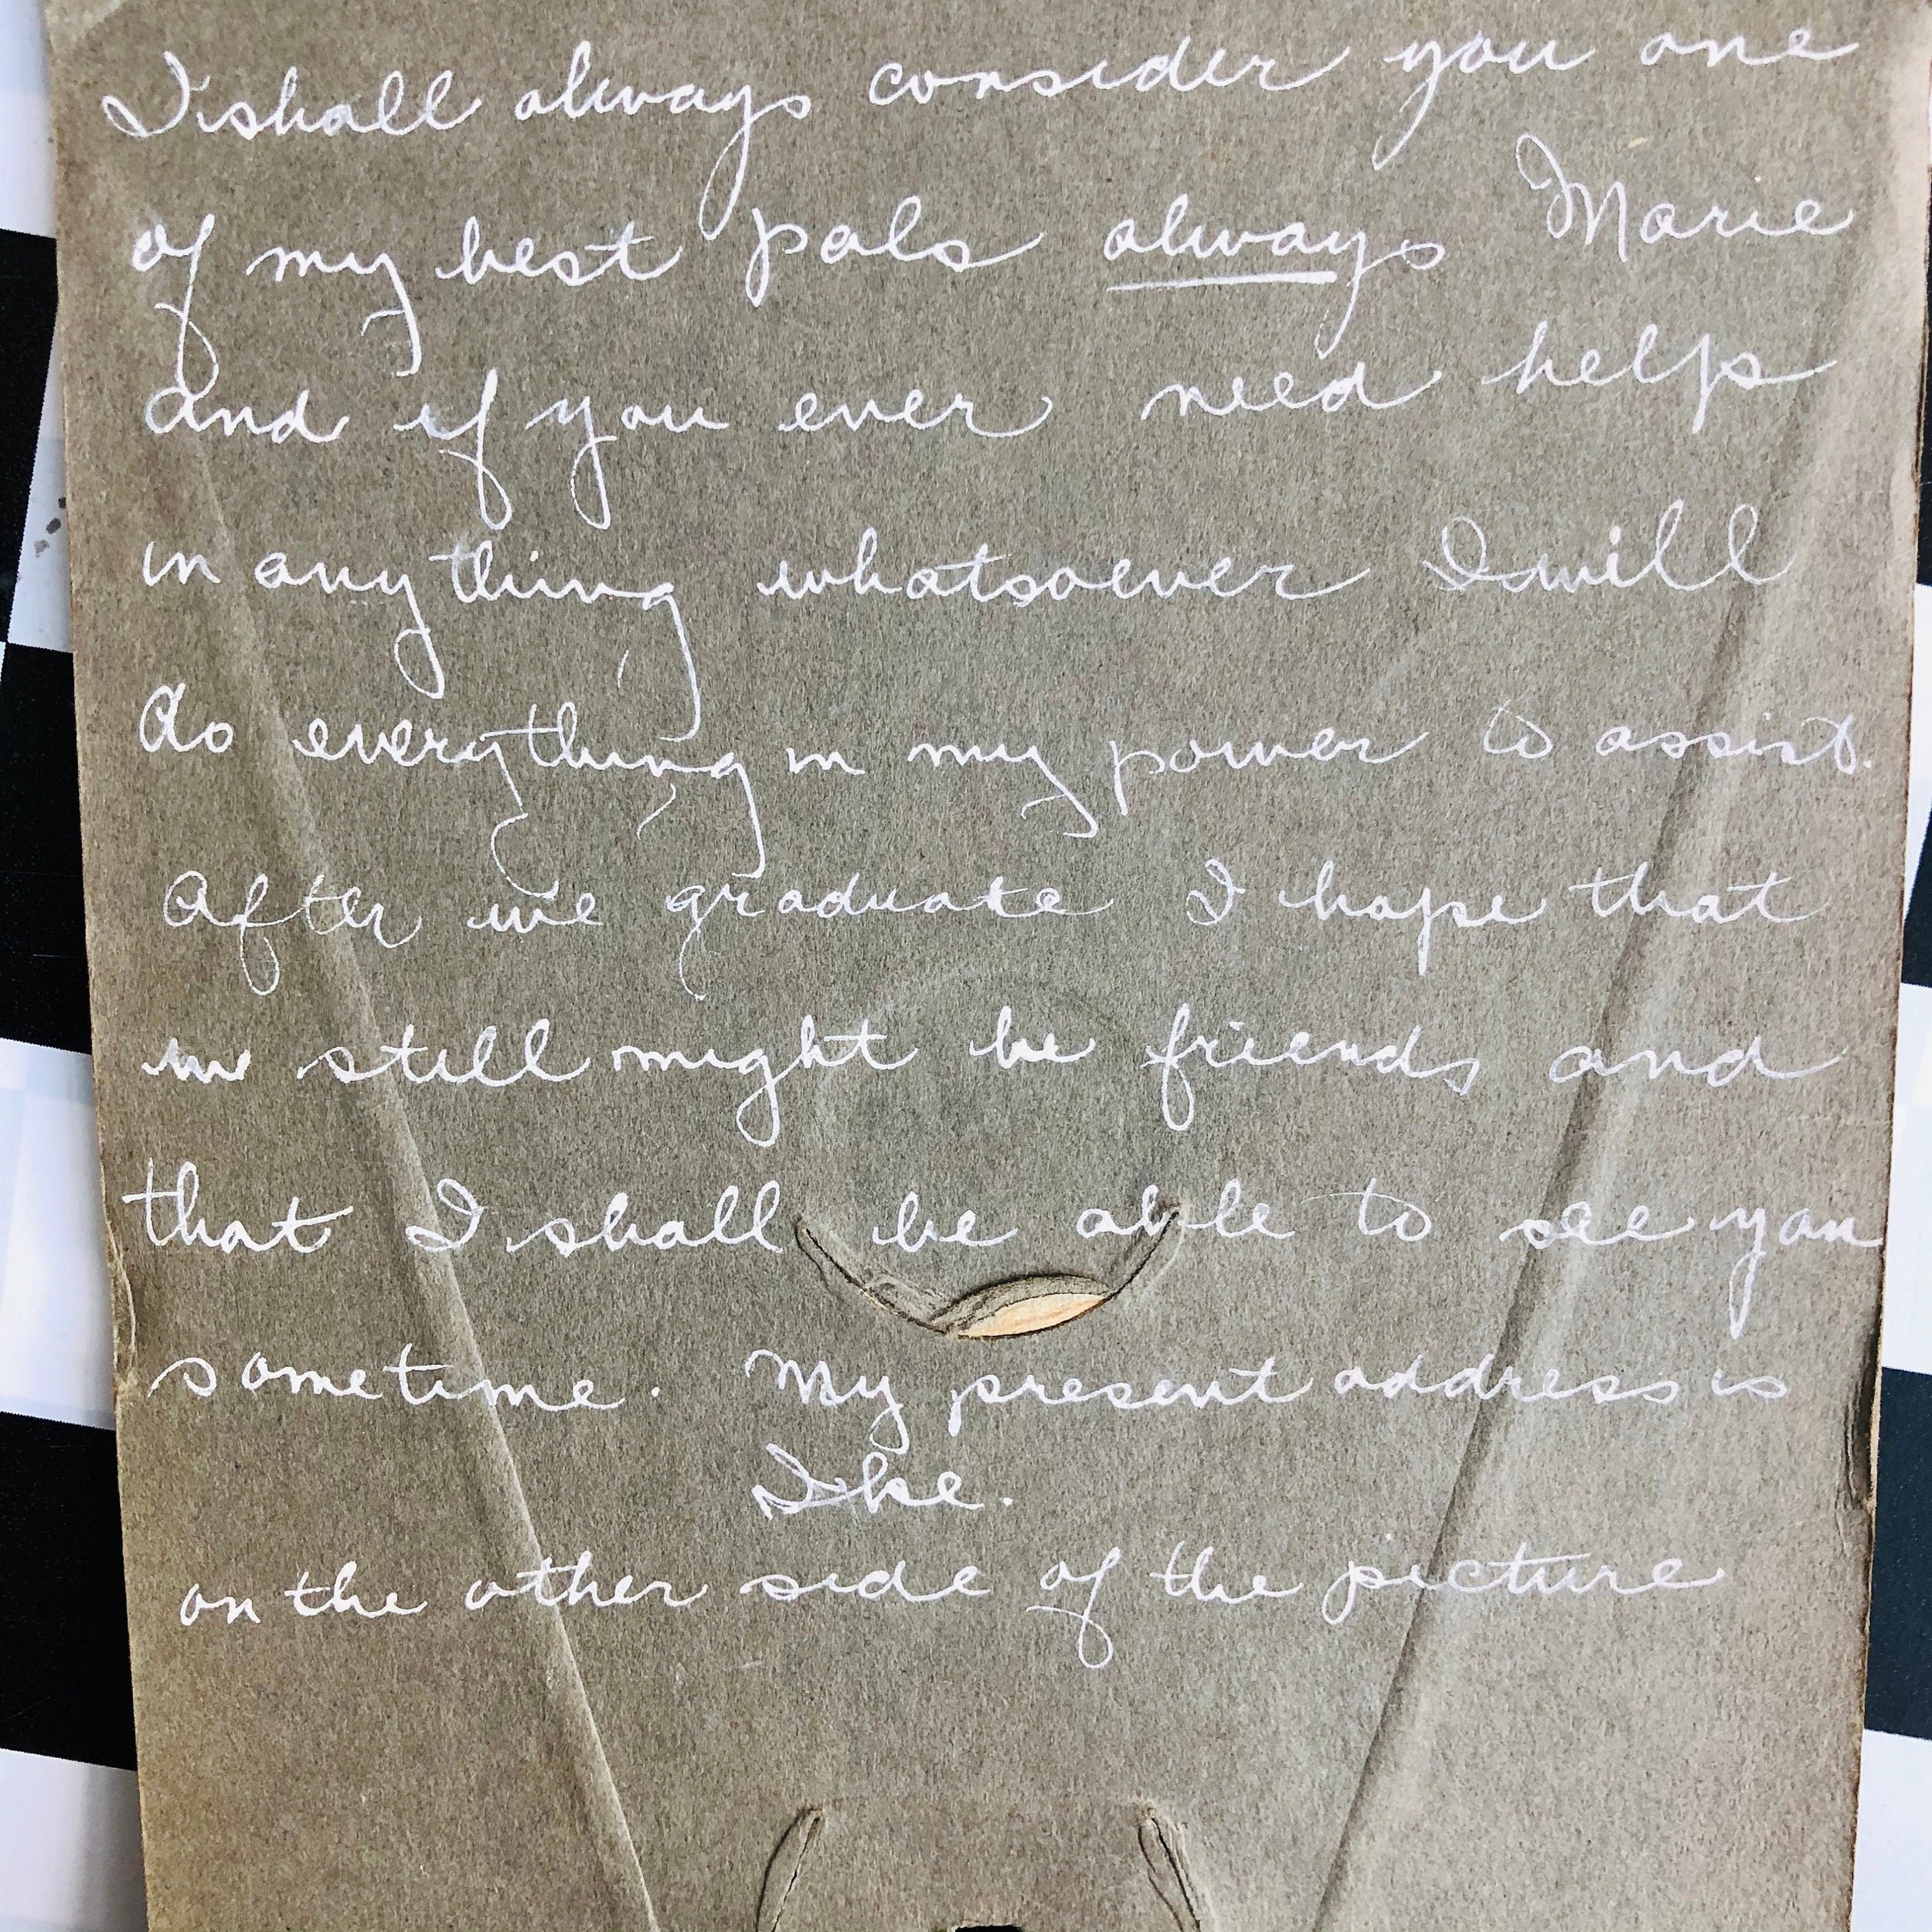 I shall always consider you one
of my best pals always Marie
and if you ever need help
in anything whatsoever I will
do everything in my power to assist.
After we graduate I hope that
we still might be friends and
that I shall be able to see you
sometime. My present address is
Ike.
on the other side of the picture